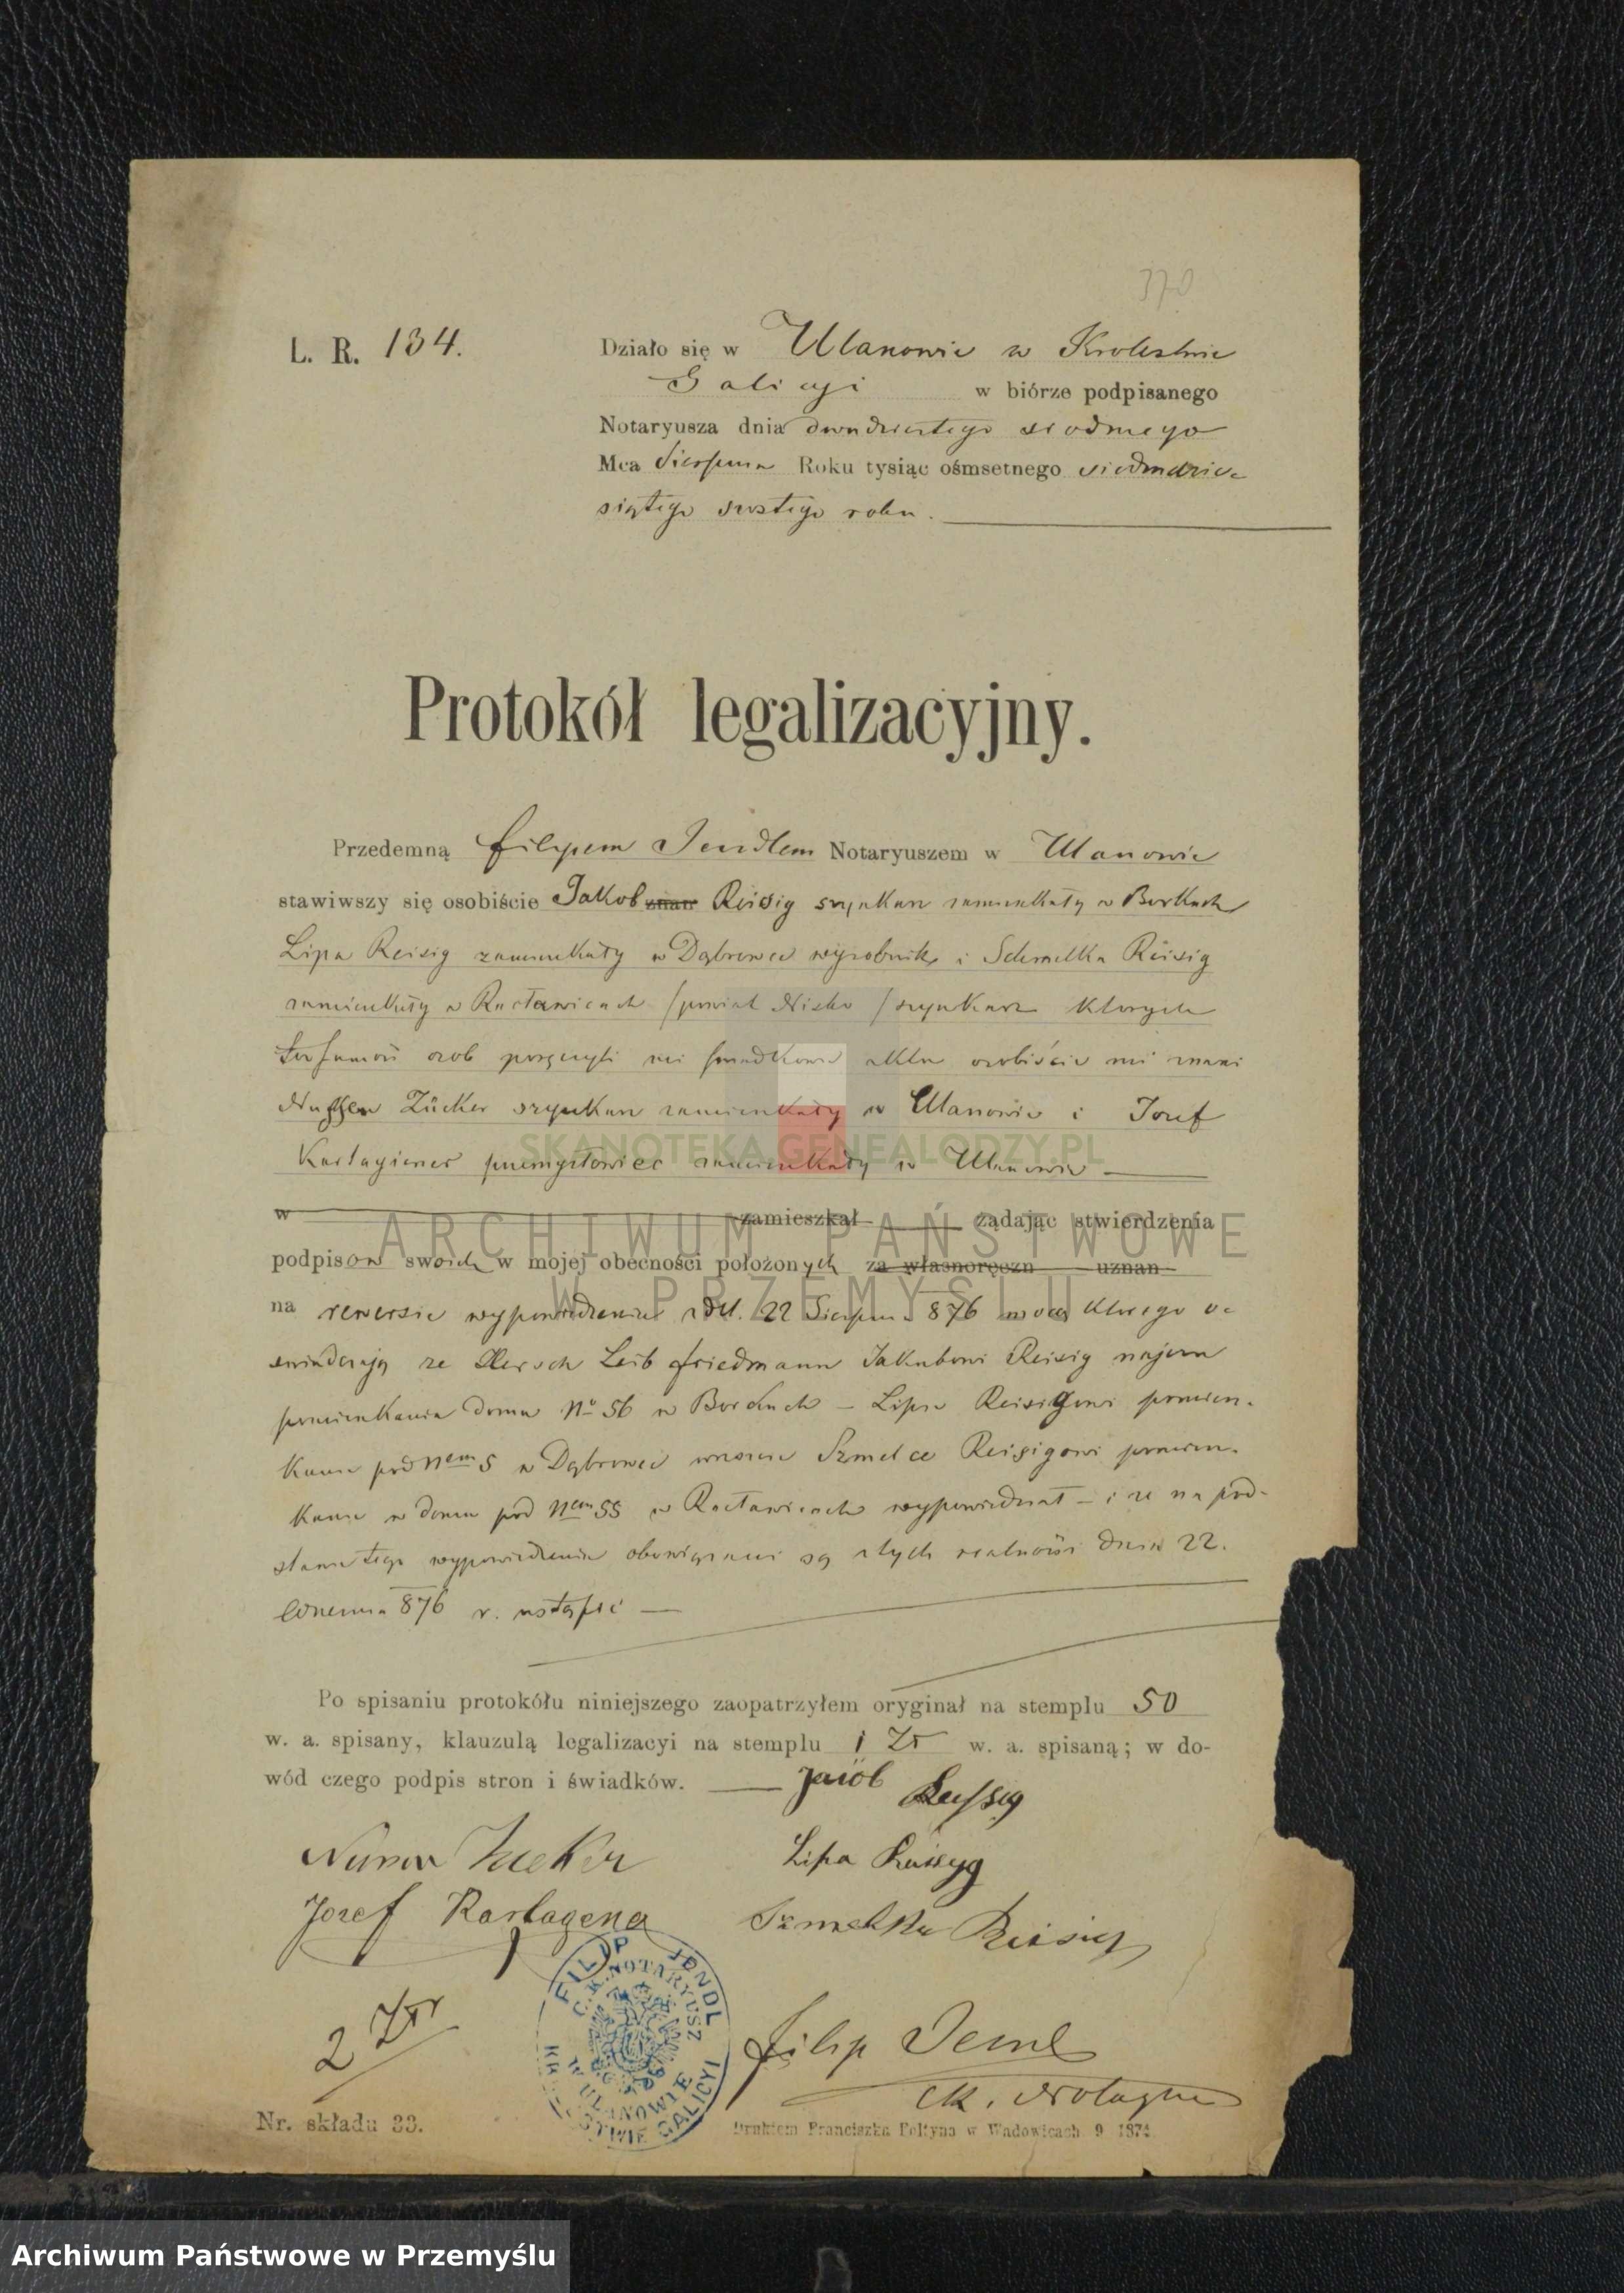 370
L. R. 134.
Działo się w Ulanowie w Krolestwie
Galicyi w biórze podpisanego
Notaryusza dnia dwudziestego siodmego
Mca Sierpnia Roku tysiąc ośmsetnego siedmdzie-
siątego szostego roku.
Protokół legalizacyjny.
Przedemną Filipem Jendlem Notaryuszem w Ulanowie
stawiwszy się osobiście Jakob znan Reisig szynkarz zamieszkały w Borkach
Lipa Reisig zamieszkały w Dąbrowce wyrobnik i Schmelka Reisig
zamieszkały w Racławicach /powiat Nisko/ szynkarz ktorych
tosamość osob poręczyli mi świadkowie aktu osobiście mi znani
Zücker szynkarz zamieszkały w Ulanowie i Jozef
Kartagener przemysłowiec zamieszkały w Ulanowie
w zamieszkał żądając stwierdzenia
podpisow swoich w mojej obecności położonych za własnoręczn uznan
na rewersie wypowiedzenia z dd. 22 Sierpnia 876 mocą ktorego o-
swiadczają ze Hersch Leib Friedmann Jakubowi Reisig najem
pomieszkania domu No 56 w Borkach – Lipie Reisigowi pomiesz-
kanie pod Nem 5 w Dąbrowce wreszcie Szmelce Reisigowi pomiesz-
kanie w domu pod Nem 55 w Racławicach wypowiedział – i ze na pod-
stawie tego wypowiedzenia obowiązani są z tych realności dnia 22.
876 r. ustąpić —
Po spisaniu protokółu niniejszego zaopatrzyłem oryginał na stemplu 50
w. a. spisany, klauzulą legalizacyi na stemplu 1 Zł w. a. spisaną; w do-
wód czego podpis stron i świadków.
Jacob Reissig
Zucker
Lipa Reissyg
Jozef Kartagena
Szmelka Reisig
FILIP JENDL
C. K. NOTARYUSZ
W ULANOWIE
GALICYI
2 Złr
Filip Jendl
ck. Notaryusz
Nr. składu 33.
Drukiem Franciszka Foltyna w Wadowicach
SKANOTEKA.GENEALODZY.PL
ARCHIWUM PAŃSTWOWE
W PRZEMYŚLU
Archiwum Państwowe w Przemyślu